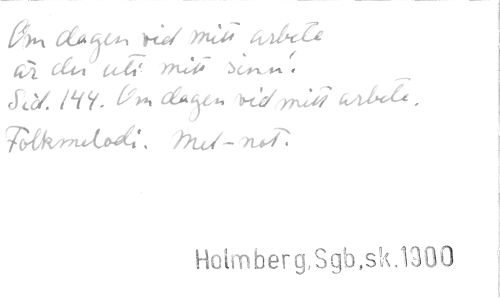 Om dagen vid mitt arbete
är du uti mitt sinn'.
Sid. 144. Om dagen vid mitt arbete.
Folkmelodi. Mel-not.
Holmberg,Sgb,sk.1900